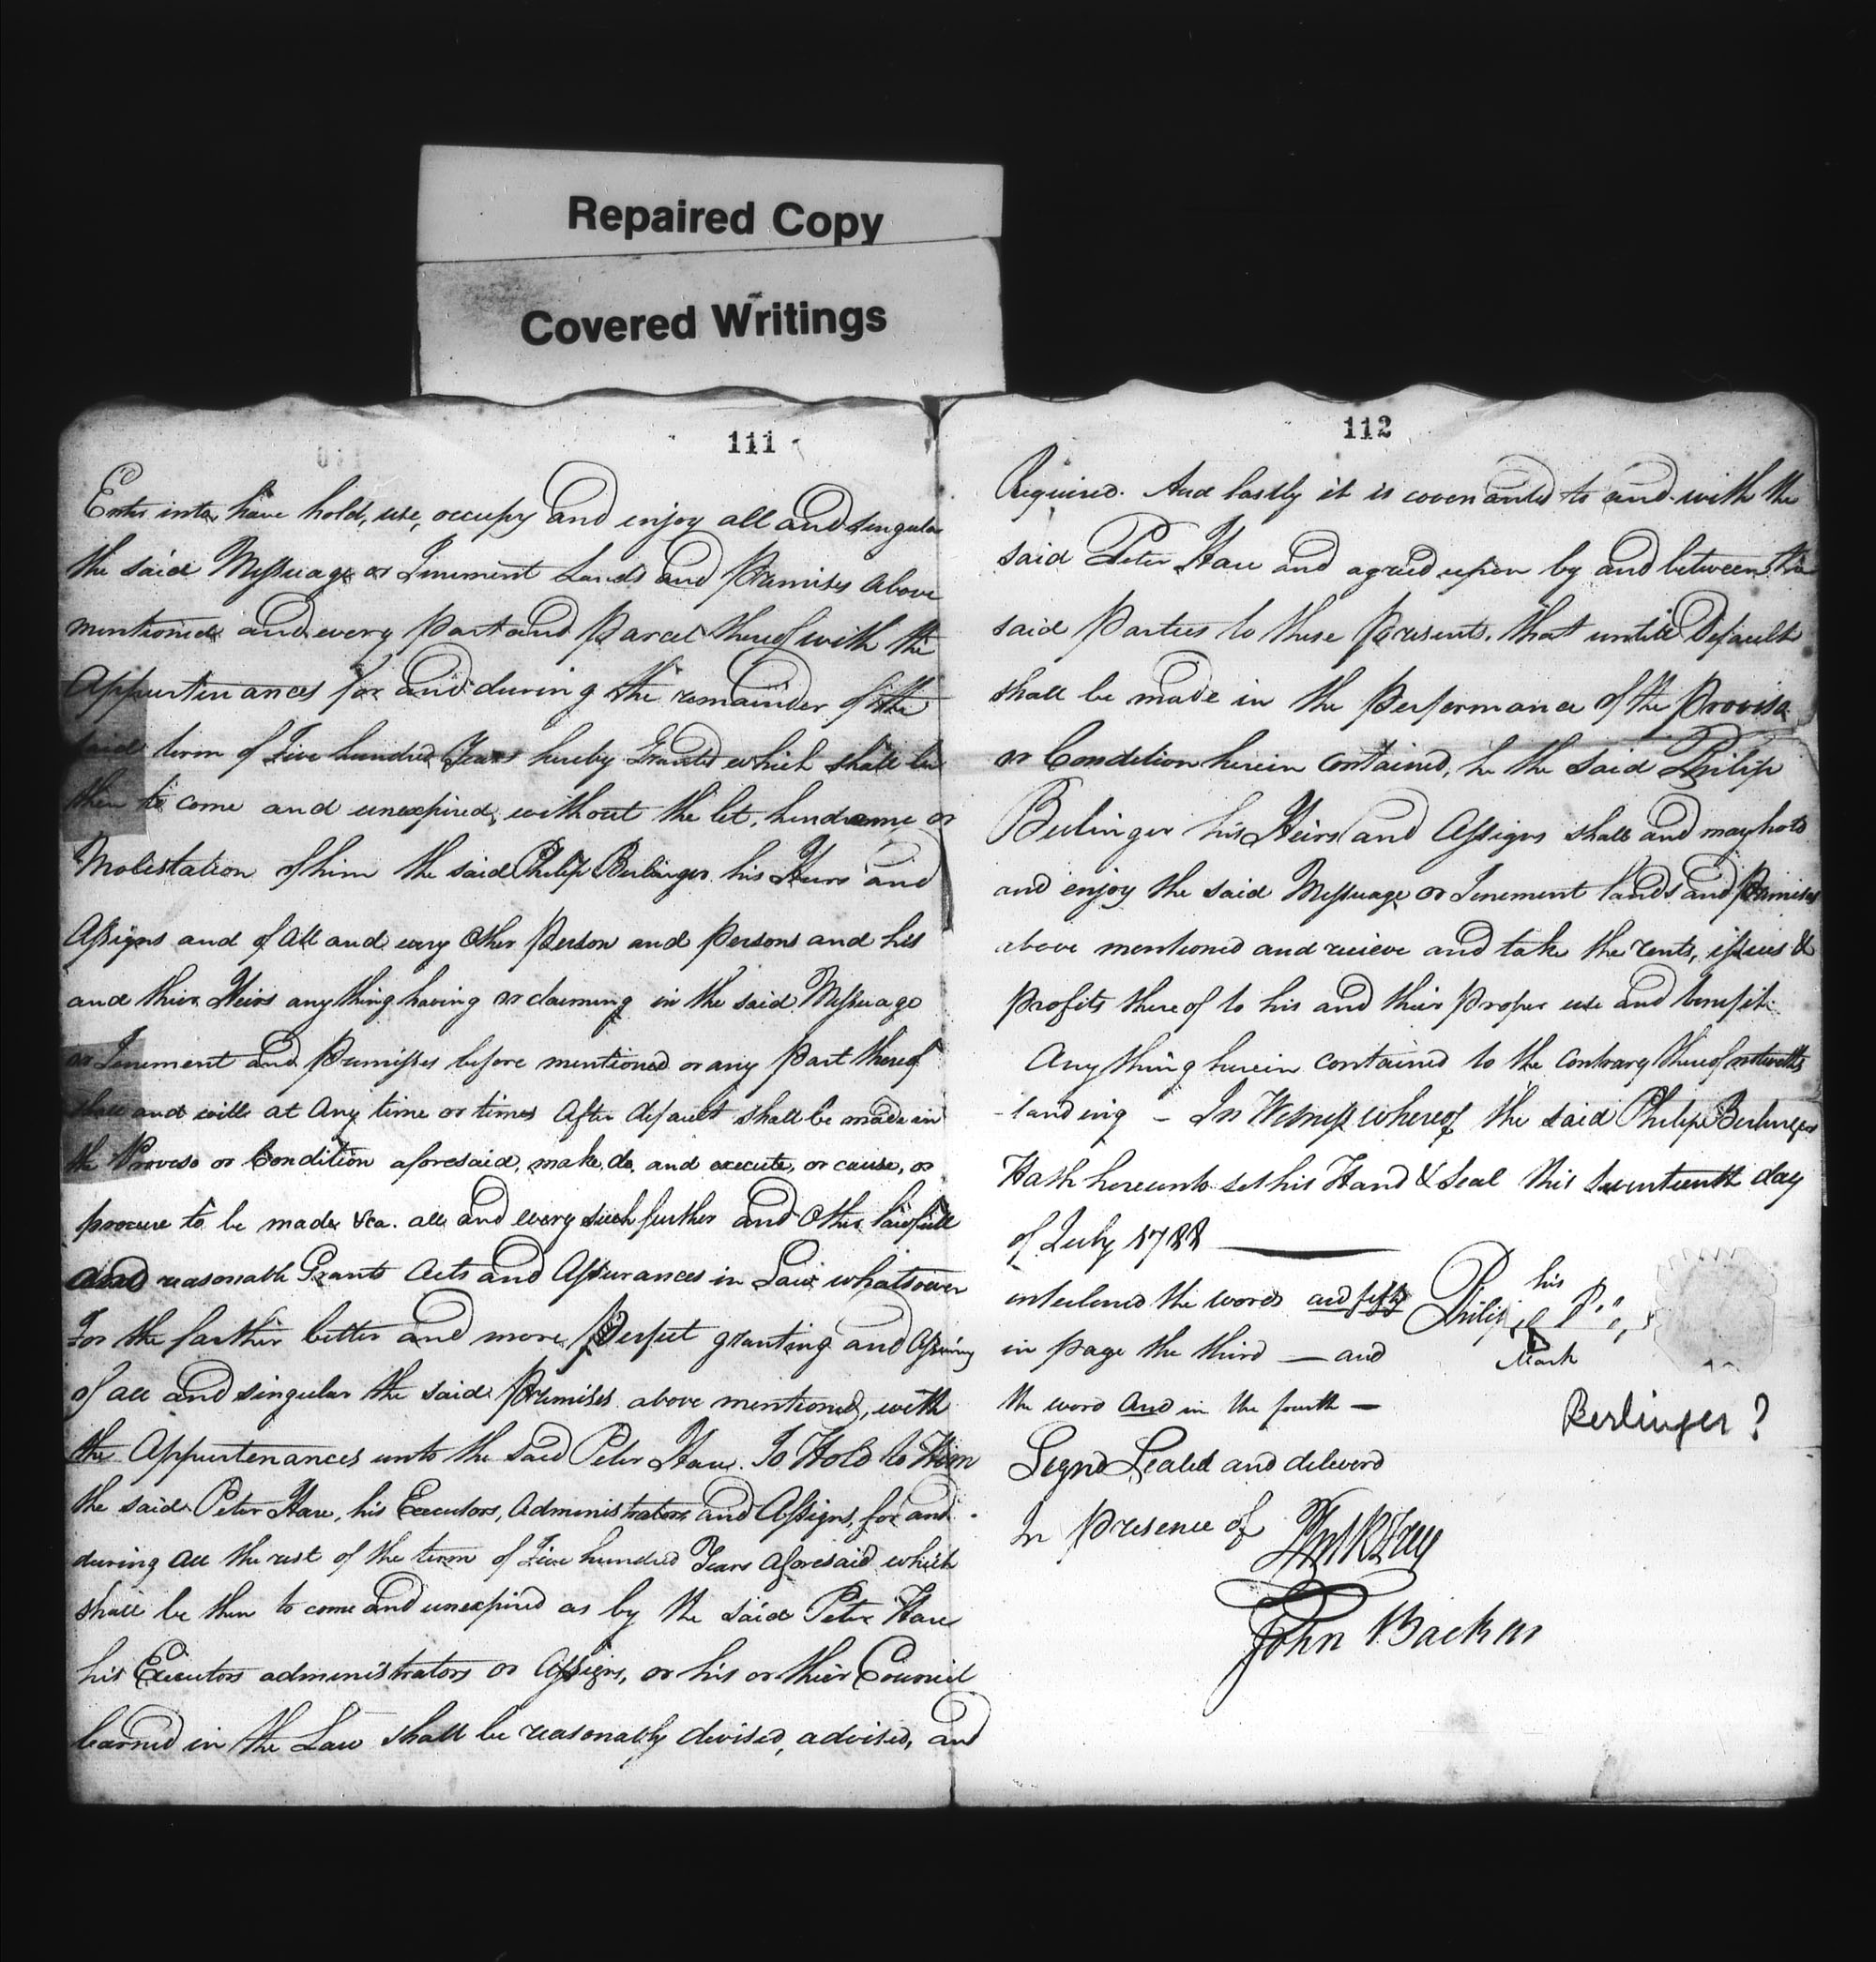 Repaired Copy
Covered Writings
111
Enter into, have hold, use, occupy and enjoy all and singular
the said Messuage or Tenement Lands and Premises above
mentioned and every Part and Parcel thereof with the
Appurtenances for and during the remainder of the
said term of Five hundred Years hereby Granted which shall be
then to come and unexpired, without the let, hinderance or
Molestation of him the said Philip Berlinger his Heirs and
Assigns and of all and every Other Person and Persons and his
and their Heirs any thing having or claiming in the said Messuage
or Tenement and Premisses before mentioned or any Part thereof
shall and will at Any time or times After default shall be made in
the Proviso or Condition aforesaid, make, do, and execute, or cause, or
procure to be made &ca. all and every such further and Other lawfull
and reasonable Grants Acts and Assurances in Law whatsoever
For the farther better and more Perfect granting and Assuring
of all and singular the said Premises above mentioned, with
the Appurtenances unto the said Peter Hare. To Hold to Him
the said Peter Hare, his Executors, Administrators and Assigns, for and
during all the rest of the term of Five hundred Years aforesaid which
shall be then to come and unexpired as by the said Peter Hare
his Executors administrators or Assigns, or his or their Council
learned in the Law shall be reasonably devised, advised, and
112
Required. And lastly it is covenanted to and with the
said Peter Hare and agreed upon by and between the
said Parties to these Presents. that untill Default
shall be made in the Performance of the Proviso
or Condition herein contained, he the said Philip
Berlinger his Heirs and Assigns shall and may hold
and enjoy the said Messuage or Tenement lands and Premises
above mentioned and recieve and take the rents, issues &
Profits thereof to his and their Proper use and benefit
Any thing herein contained to the Contrary thereof notwiths
-tanding - In Witness whereof the said Philip Berlinger
Hath hereunto set his Hand & Seal this seventeenth day
of July 1788
interlined the words and fifty
in page the third — and
the word And in the fourth —
Philip his
Mark
Berlinger ?
Signd Sealed and deliverd
In Presence of
John Backus